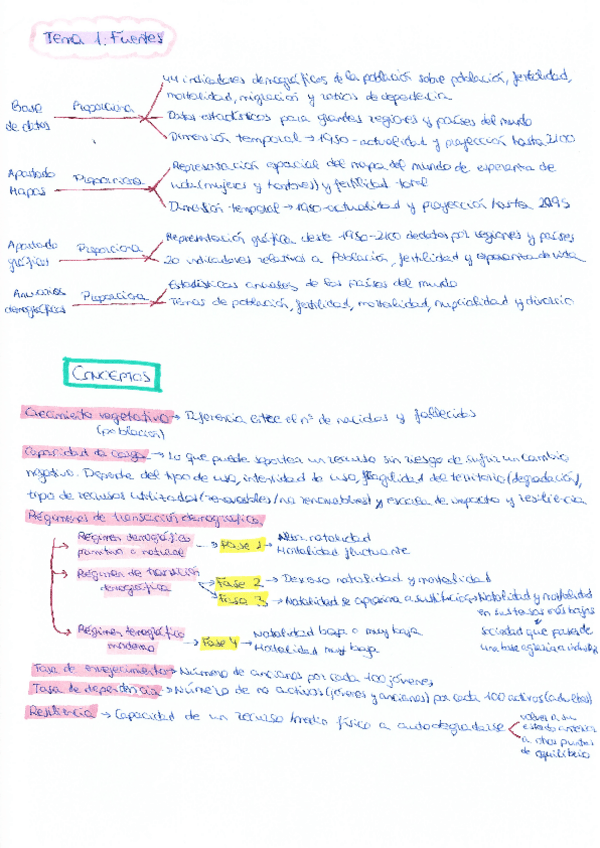 Tema 1. Fuentes
44 indicadores demográficos de la población sobre población, fertilidad,
mortalidad, migración y ratios de dependencia
Base de datos Proporciona
Datos estadísticos para grandes regiones y países del mundo
Dimensión temporal → 1950-actualidad y proyección hasta 2100
Apartado Mapas Proporciona
Representación espacial del mapa del mundo de esperanza de
vida (mujeres y hombres) y fertilidad total
Dimensión temporal → 1950-actualidad y proyección hasta 2095
Apartado gráficos Proporciona
Representación gráfica desde 1950-2100 de datos por regiones y países
20 indicadores relativos a Población, fertilidad y esperanza de vida
Anuarios demográficos Proporciona
Estadísticas anuales de los países del mundo
Temas de población, fertilidad, mortalidad, nupcialidad y divorcio
CONCEPTOS
Crecimiento vegetativo → Diferencia entre el nº de nacidos y fallecidos
(población)
Capacidad de carga → Lo que puede soportar un recurso sin riesgo de sufrir un cambio
negativo. Depende del tipo de uso, intensidad de uso, fragilidad del territorio (degradación),
tipo de recursos utilizados (renovables/no renovables) y escala de impacto y resiliencia
Regímenes de transición demográfica
Régimen demográfico
primitivo o natural → Fase 1 → Alta natalidad
→ Mortalidad fluctuante
Régimen de transición
demográfica
Fase 2 → Descenso natalidad y mortalidad
Fase 3 → Natalidad se aproxima a sustitución → Natalidad y mortalidad
en sus tasas más bajas
sociedad que pasa de
una base agraria a
Régimen demográfico
moderno → Fase 4 → Natalidad baja o muy baja
→ Mortalidad muy baja
Tasa de envejecimiento → Número de ancianos por cada 100 jóvenes
Tasa de dependencia → Número de no activos (jóvenes y ancianos) por cada 100 activos (adultos)
Resiliencia → Capacidad de un recurso/medio físico a autodegradarse
volver a su
estado anterior
a otros puntos
de equilibrio